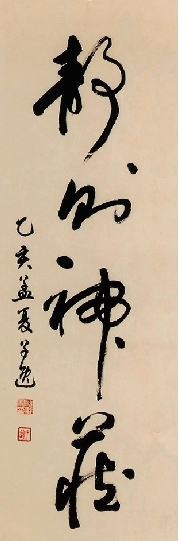 靜則神藏
乙亥孟夏子逸